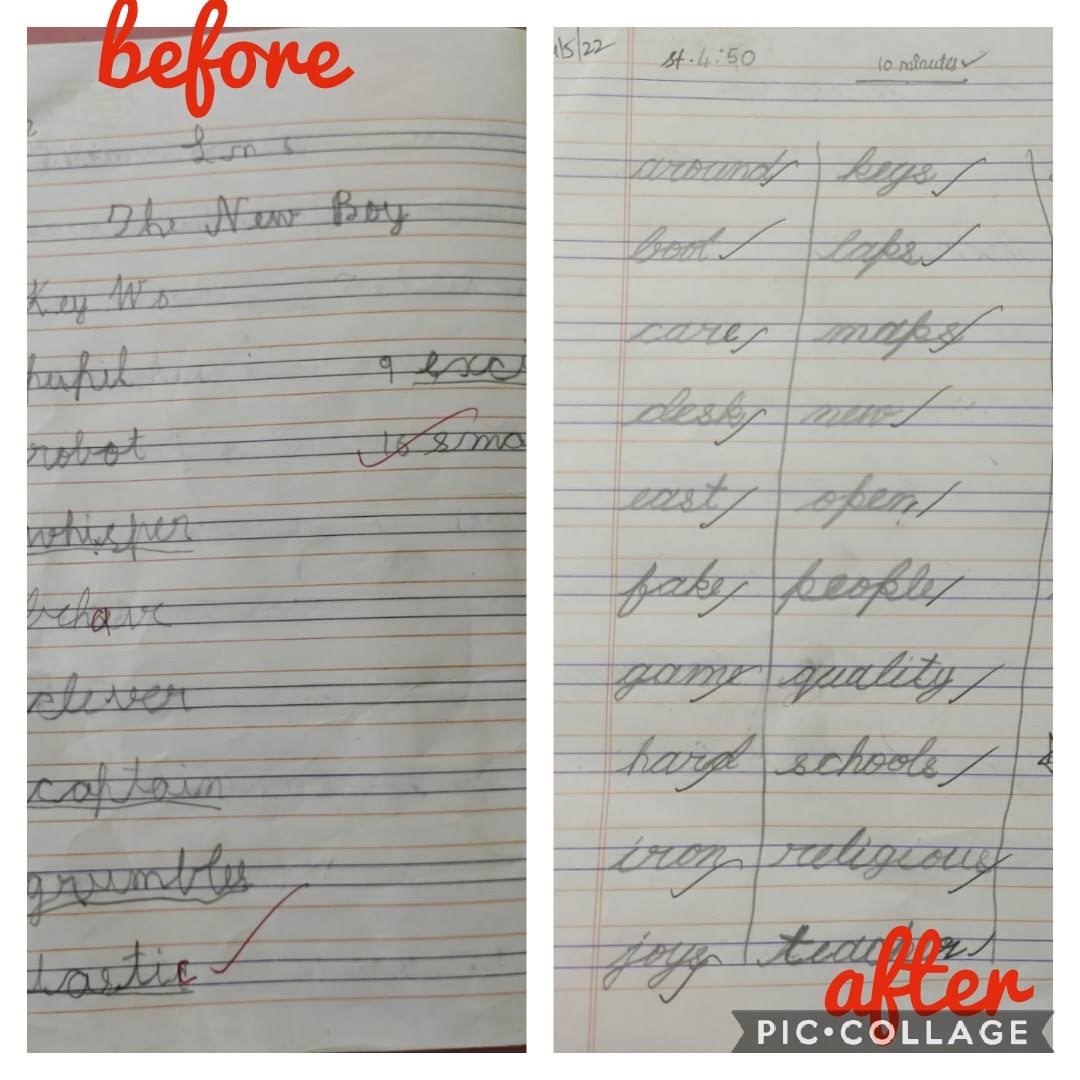 before
The New Boy
Key Ws
pupil
9 exci
robot
10 sma
whisper
behave
clever
captain
grumbles
tastic
/5/22 st. 4:50 10 minutes
around keys
boot laps
care maps
desk new
east open
fake people
game quality
hard schools
iron religious
joys teacher
after
PIC•COLLAGE